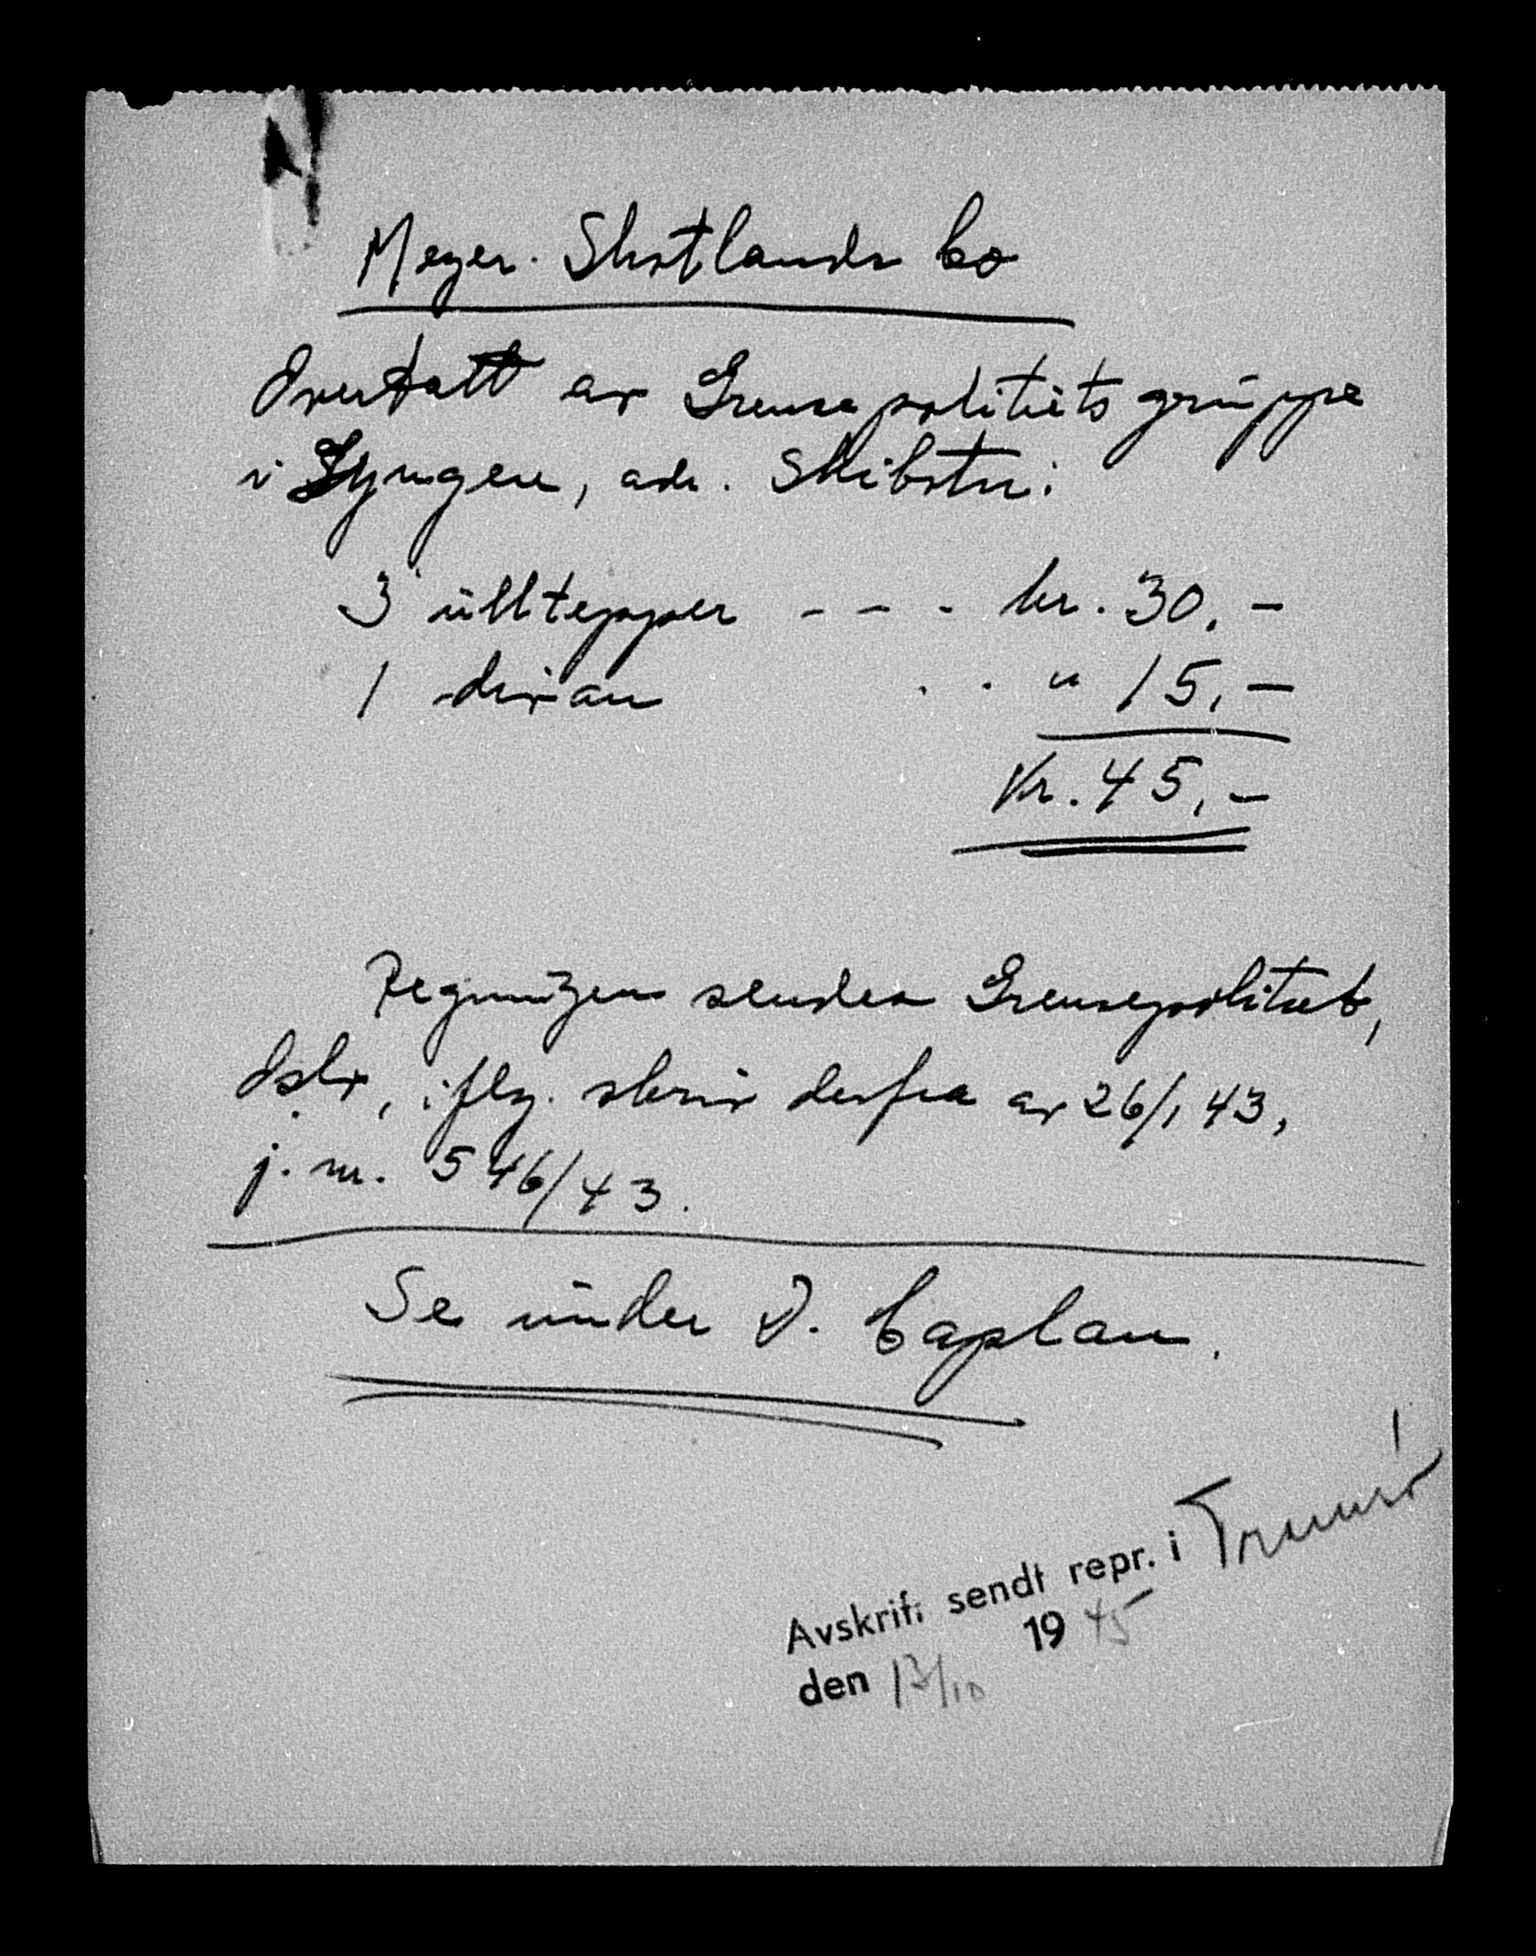 Meyer. Shotlands bo
Overtatt av Grensepolitiets gruppe
i Lyngen, adr. Skibotn:
3 ulltepper - - - kr. 30,-
1 divan . . " 15,-
Kr. 45,-
Regningen sendes Grensepolitiet,
Oslo, iflg. skriv derfra av 26/1 43,
j. nr. 546/43.
Se under D. Caplan.
Avskrift sendt repr. i Tromsö
den 13/10 1945